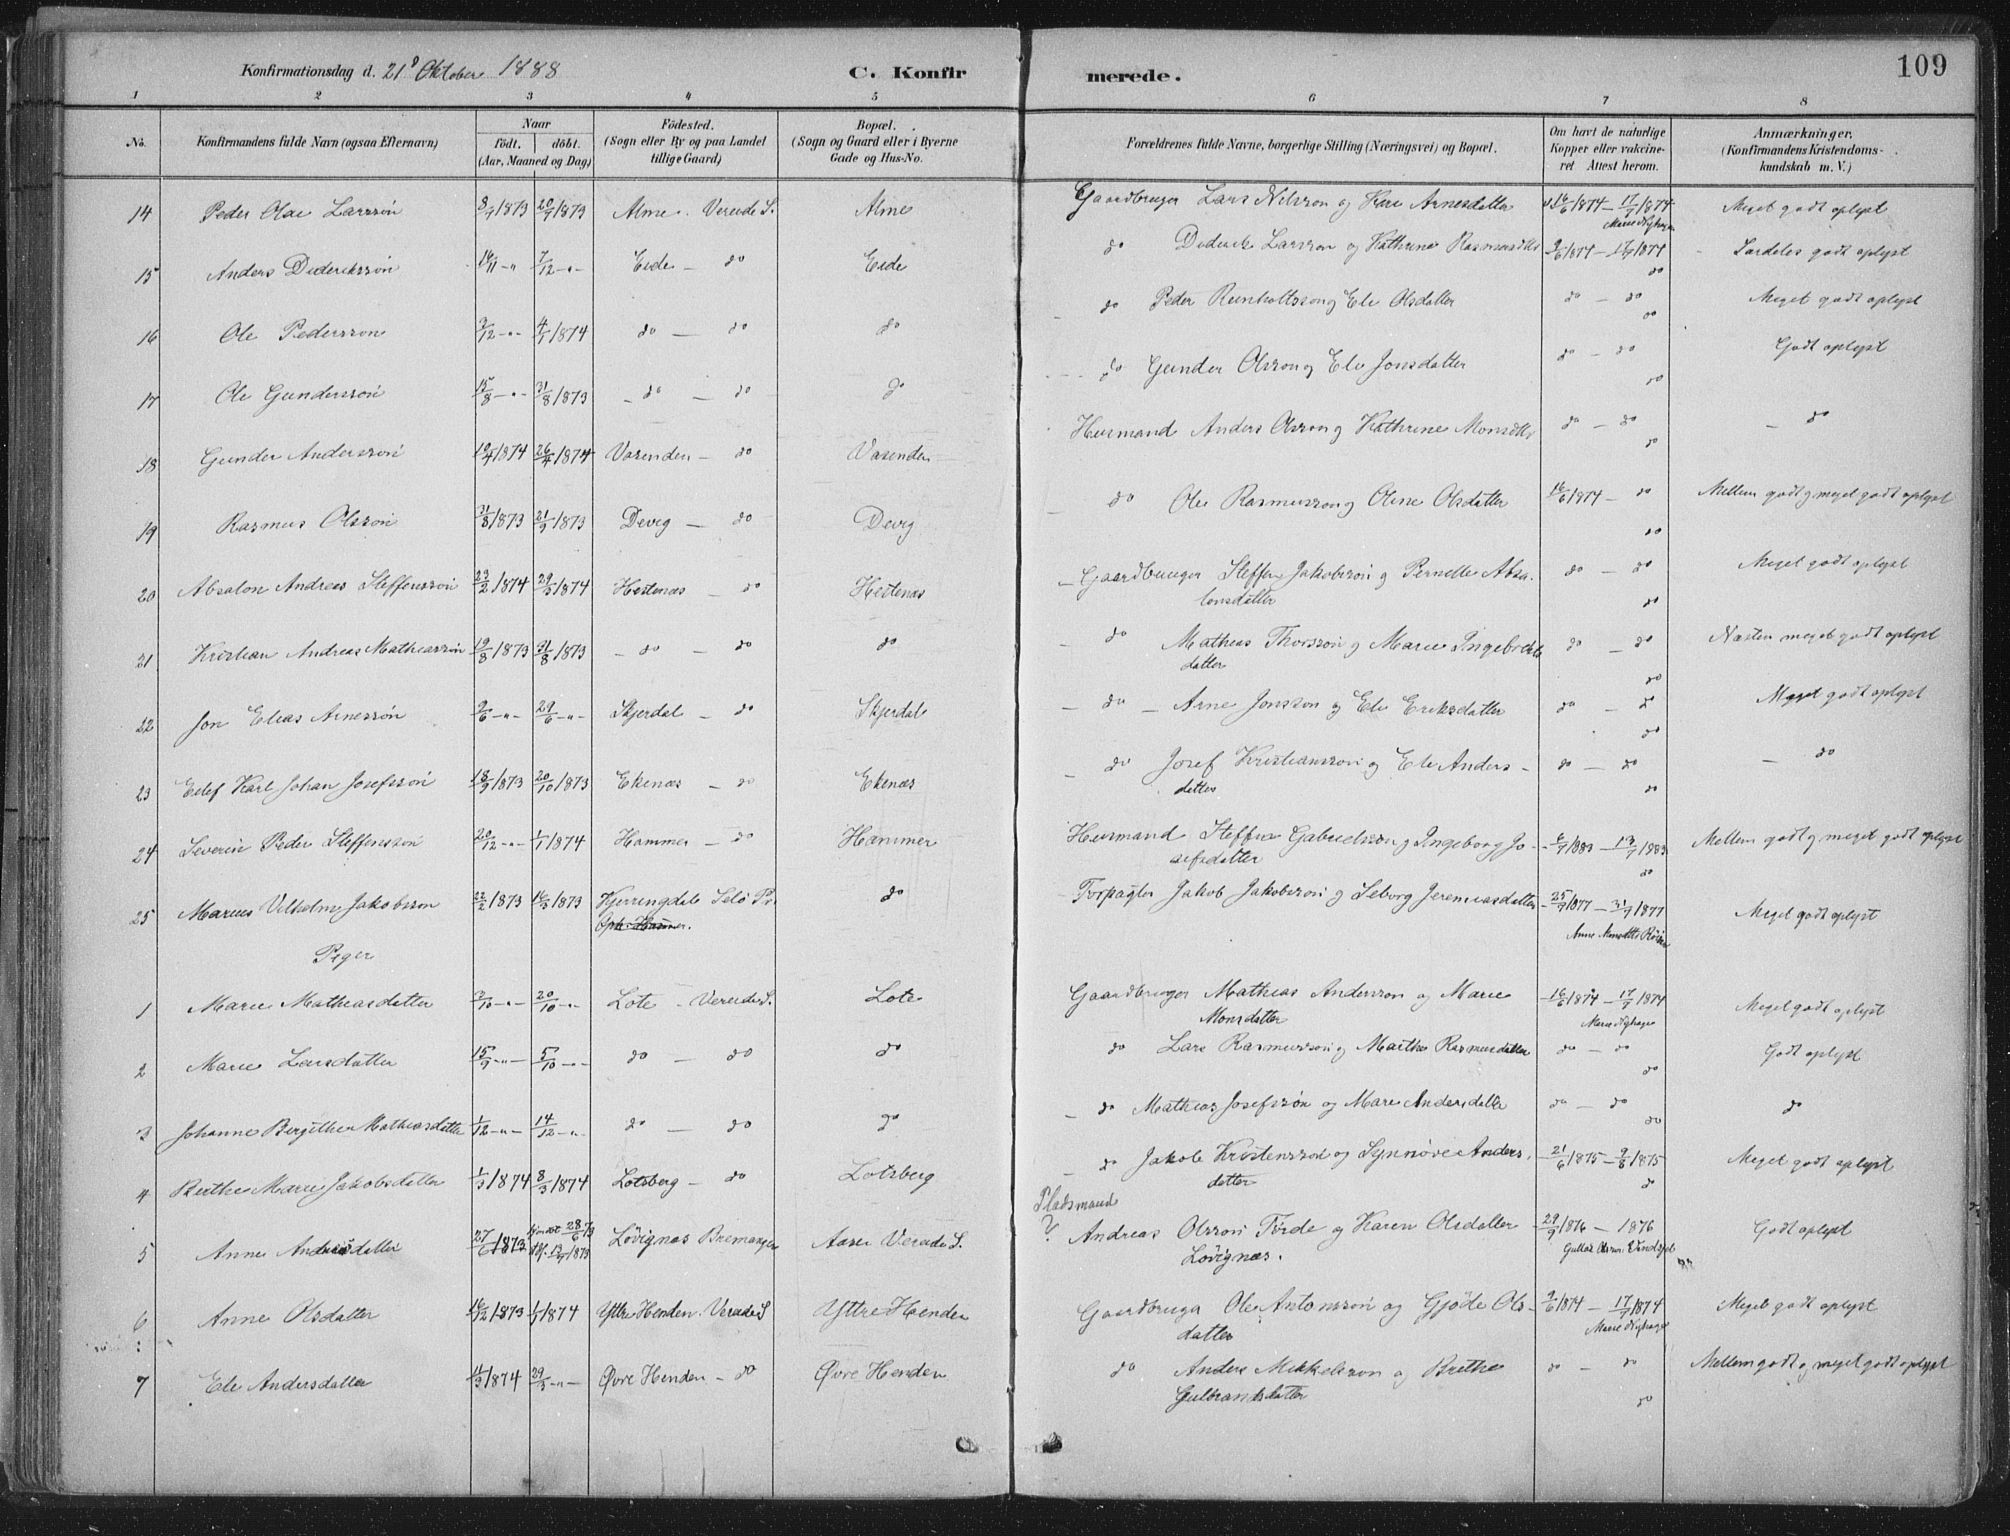 Konfirmationsdag d. 21 Oktober 1888 C. Konfirmerede. 109
1 2 3 4 5 6 7 8
No. Konfirmandens fulde Navn (ogsaa Efternavn) Naar födt. döbt. (Aar, Maaned og Dag) Födested. (Sogn eller By og paa Landet tillige Gaard) Bopæl. (Sogn og Gaard eller i Byerne Gade og Hus-No. Forældrenes fulde Navne, borgerlige Stilling (Næringsvei) og Bopæl. Om havt de naturlige Kopper eller vakcineret Attest herom. Anmærkninger, (Konfirmandens Kristendomskundskab m. V.)
14 Peder Olai Larssön 8/7 1873 20/7 1873 Alme Vereide S. Alme Gaardbruger Lars Nilsson og Arnesdatter 16/6 1874 – 17/7 1874 Meget godt oplyst
Marie Nyhagen
15 Anders Dideriksson 16/11 -"- 7/12 -"- Eide – do Eide do Diderik Larsson og Kathrine Rasmusdtr 9/6 1874 – 17/7 1874 Særdeles godt oplyst
do
16 Ole Pedersson 3/12 -"- 4/1 1874 do – do do do Peder Reinholtsson og Eli Olsdatter do – do Meget godt oplyst
do
17 Ole Gundersson 15/8 -"- 31/8 1873 do – do do do Gunder Olsson og Eli Jonsdatter do – do Godt oplyst
do
18 Gunder Andersson 10/4 1874 26/4 1874 Vasenden – do Vasenden Husmand Anders Olsson og Kathrine Monsdtr do – do – do
do
19 Rasmus Olsson 31/8 1873 21/9 1873 Devig – do Devig do Ole Rasmusson og Oline Olsdatter 16/6 1874 – do Mellem godt og meget godt oplyst
do
20 Absalon Andreas Steffensson 23/2 1874 29/3 1874 Hestenæs – do Hestenæs Gaardbruger Steffen Jakobsson og Pernelle Absa-
lonsdatter do – do Meget godt oplyst
do
21 Kristian Andreas Mathiassön 19/8 1873 31/8 1873 do – do do do Mathias Thorsson og Marie Ingebrikts
datter do – do Næsten meget godt oplyst
do
22 Jon Elias Arnesson 9/6 -"- 29/6 -"- Skjerdal – do Skjerdal do Arne Jonsson og Eli Eriksdatter do – do Meget godt oplyst
do
23 Eilef Karl Johan Josefsson 18/9 1873 20/10 1873 Ekenæs – do Ekenæs do Josef Kristiansson og Eli Anders-
datter do – do – do
do
24 Severin Peder Steffensson 20/12 -"- 1/1 1874 Hammer – do Hammer Husmand Steffen Gabrielsson og Ingeborg Jo-
sefsdatter 6/7 1883 – 13/7 1883 Mellem godt og meget godt oplyst
do
25 Marius Vilhelm Jakobsson 22/2 1873 16/3 1873 Hjerringdal Selö Pr. do Forpagter Jakob Jakobsson og Seborg Jeremiasdatter 25/7 1877 – 31/7 1877 Meget godt oplyst
Hammer.
Piger
1 Marie Mathiasdatter 3/10 -"- 20/10 -"- Lote – Vereide S. Lote Gaardbruger Mathias Andersson og Marie
Monsdatter 16/6 1874 – 17/7 1874 Meget godt oplyst
Marie Nyhagen
2 Marie Larsdatter 15/9 -"- 5/10 -"- do – do do do Lars Rasmusson og Marthe Rasmusdatter do – do Godt oplyst
do
3 Johanne Bergithe Mathiasdatter 1/12 -"- 14/12 -"- do – do do do Mathias Josefsson og Marie Andersdatter do – do do
do
4 Berthe Marie Jakobsdatter 1/3 1874 8/3 1874 Lotsberg – do Lotsberg do Jakob Kristensson og Synnöve Anders
datter 21/6 1875 – 9/8 1875 Meget godt oplyst
do
Pladsmand
5 Anne Andersdatter 27/6 1873 28/6 73 13/7 1873 Lövignæs Bremanger Aasen Vereide S. ? Andreas Olsson Förde og Karen Olsdatter
Lövignæs. 29/9 1876 – 1876 Godt oplyst
6 Anne Olsdatter 16/12 1873 1/1 1874 Yttre Henden Vereide S Yttre Henden Gaardbruger Ole Antonsson og Gjöde Ols-
datter 9/6 1874 – 17/7 1874 Meget godt oplyst
Marie Nyhagen
7 Eli Andersdatter 11/3 1874 29/3 -"- Øvre Henden – do Øvre Henden do Anders Mikkelsson og Brithe
Gulbrandsdatter do – do Mellem godt og meget godt oplyst
do